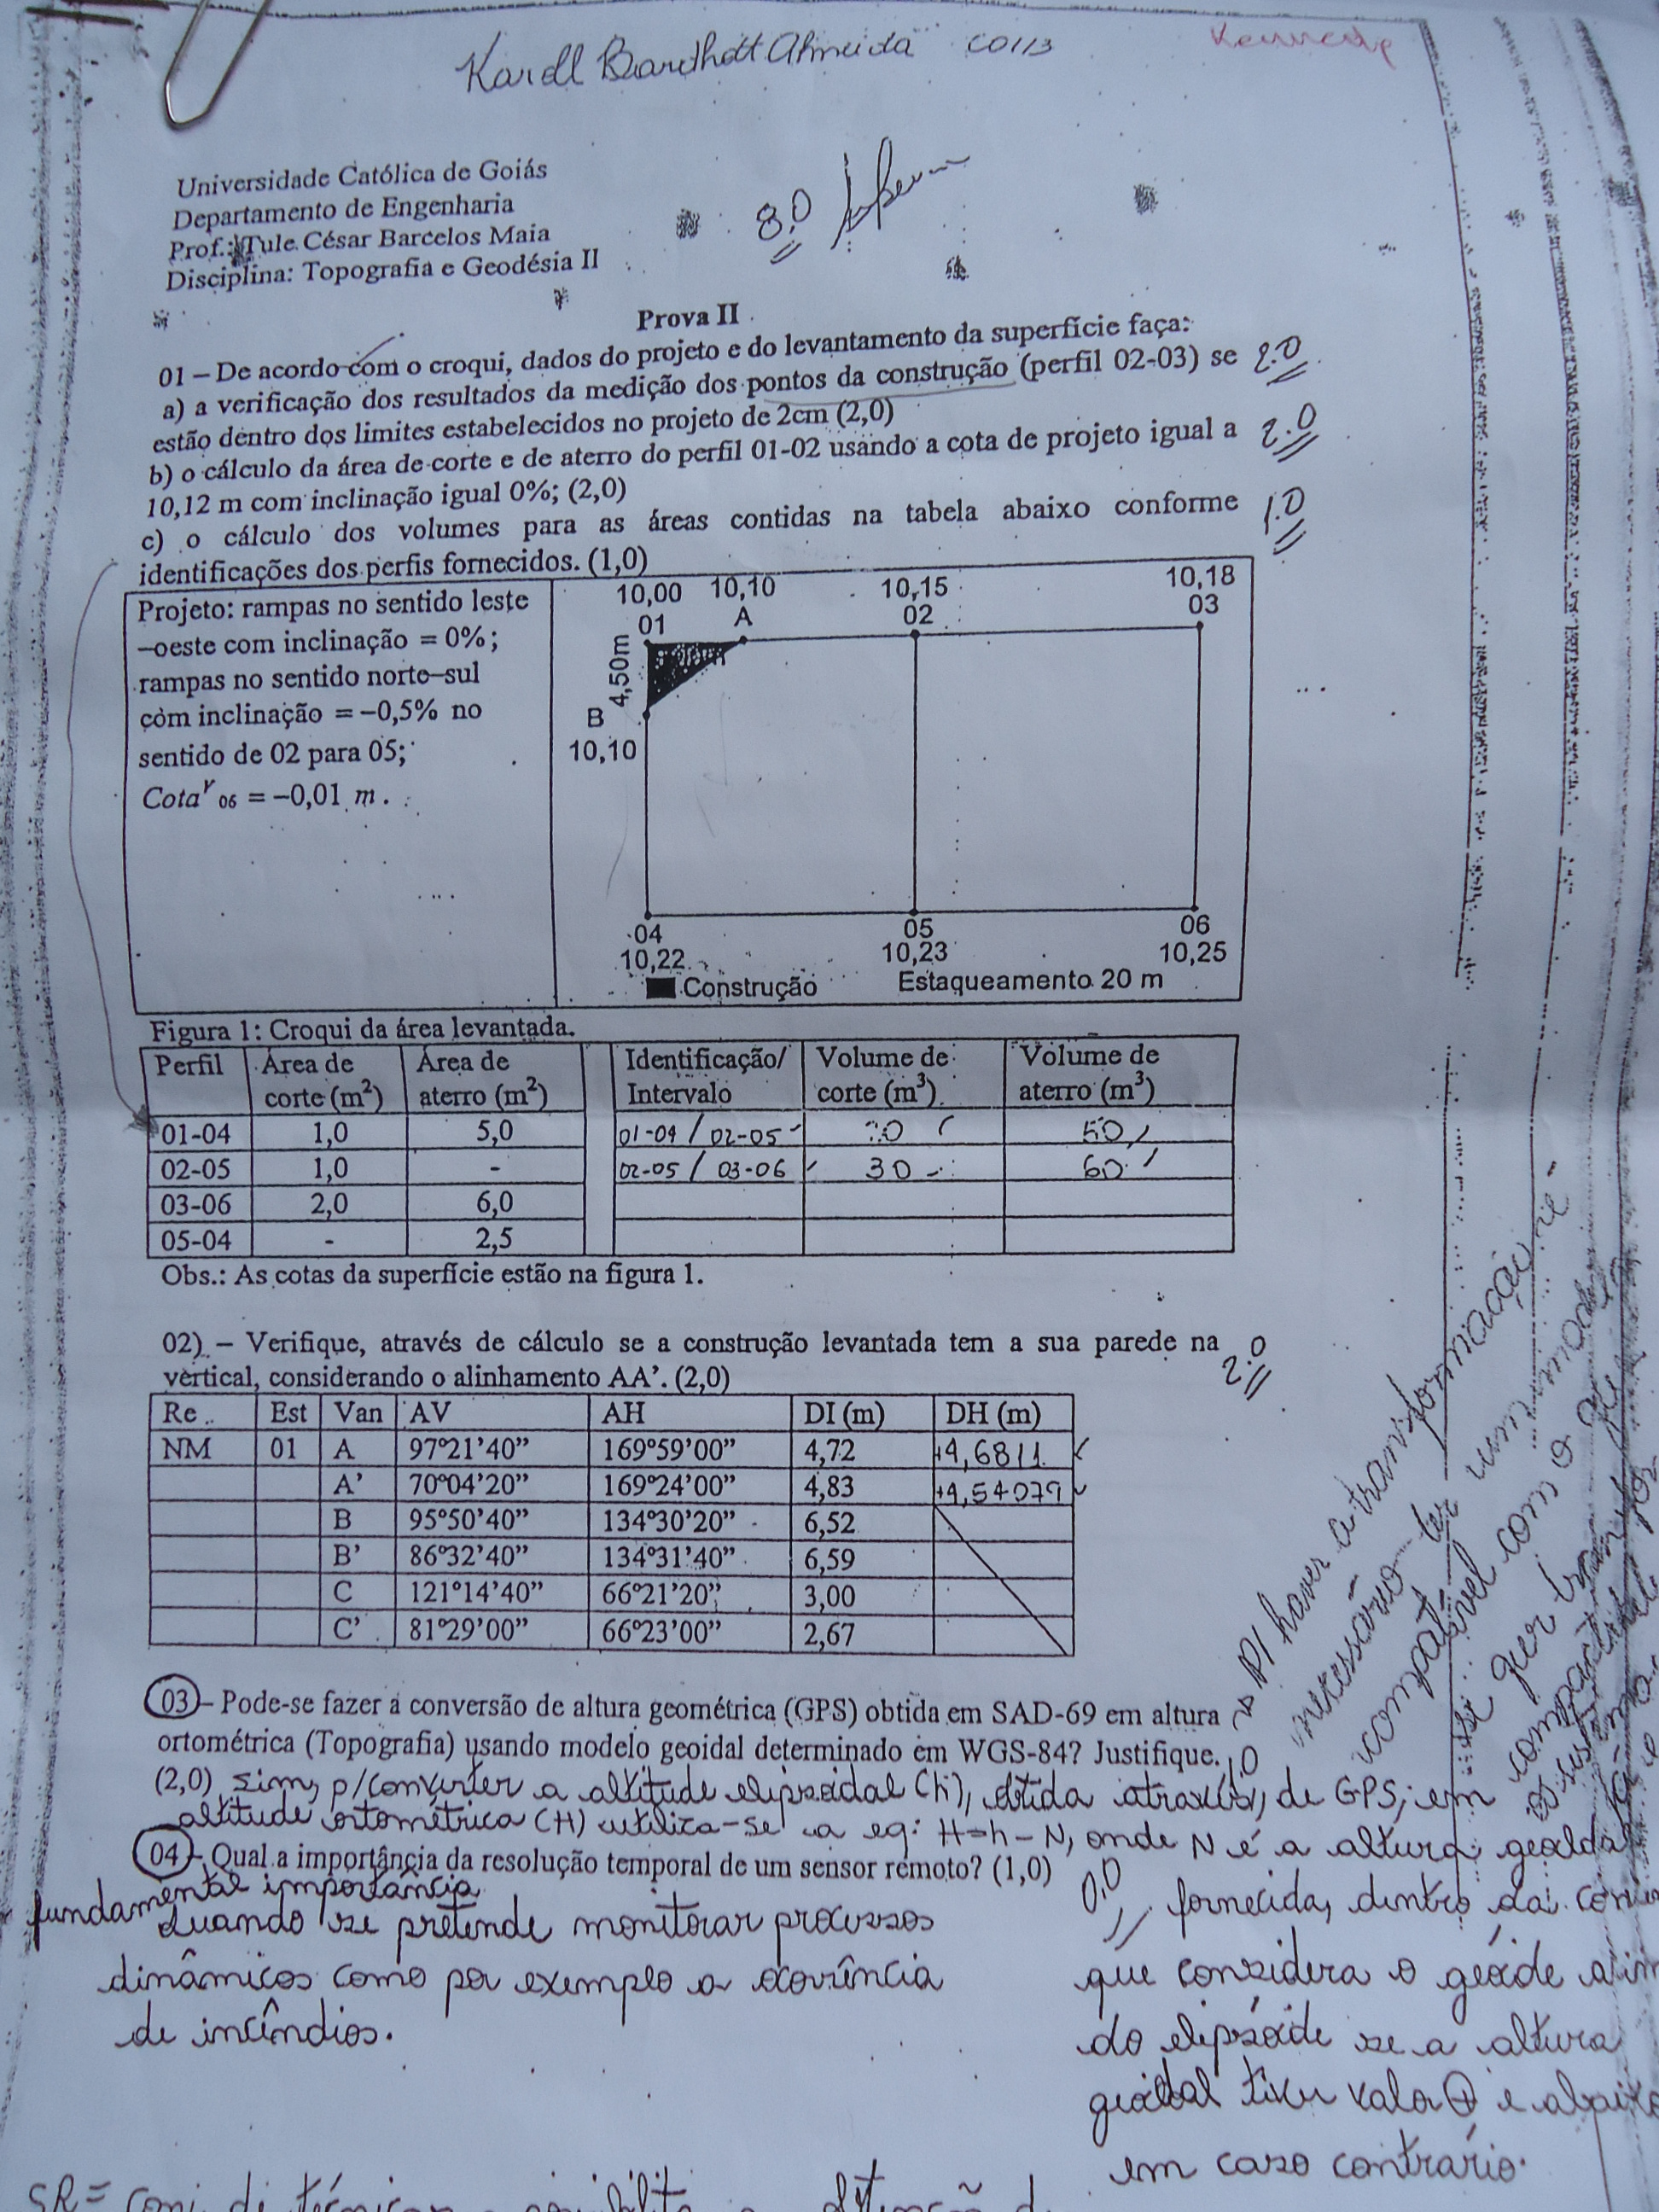 Karoll Almeida CO113
Universidade Católica de Goiás
Departamento de Engenharia
Prof.: Tule César Barcelos Maia
Disciplina: Topografia e Geodésia II
8.0
Prova II
01 – De acordo com o croqui, dados do projeto e do levantamento da superfície faça:
a) a verificação dos resultados da medição dos pontos da construção (perfil 02-03) se 2.0
estão dentro dos limites estabelecidos no projeto de 2cm (2,0)
b) o cálculo da área de corte e de aterro do perfil 01-02 usando a cota de projeto igual a 2.0
10,12 m com inclinação igual 0%; (2,0)
c) o cálculo dos volumes para as áreas contidas na tabela abaixo conforme 1.0
identificações dos perfis fornecidos. (1,0)
Projeto: rampas no sentido leste
–oeste com inclinação = 0%;
rampas no sentido norte–sul
com inclinação = –0,5% no
sentido de 02 para 05;
Cota r 06 = –0,01 m.
10,00 10,10 10,15 10,18
01 A 02 03
4,50m
B
10,10
04 05 06
10,22 10,23 10,25
Construção Estaqueamento 20 m
Figura 1: Croqui da área levantada.
Perfil Área de corte (m²) Área de aterro (m²) Identificação/ Intervalo Volume de corte (m³) Volume de aterro (m³)
01-04 1,0 5,0 01-04 / 02-05 50
02-05 1,0 - 02-05 / 03-06 30 60
03-06 2,0 6,0
05-04 - 2,5
Obs.: As cotas da superfície estão na figura 1.
02) – Verifique, através de cálculo se a construção levantada tem a sua parede na 2.0
vertical, considerando o alinhamento AA’. (2,0)
Re Est Van AV AH DI (m) DH (m)
NM 01 A 97º21’40” 169º59’00” 4,72 +4,6811
A’ 70º04’20” 169º24’00” 4,83 +4,54079
B 95º50’40” 134º30’20” 6,52
B’ 86º32’40” 134º31’40” 6,59
C 121º14’40” 66º21’20” 3,00
C’ 81º29’00” 66º23’00” 2,67
03 – Pode-se fazer a conversão de altura geométrica (GPS) obtida em SAD-69 em altura
ortométrica (Topografia) usando modelo geoidal determinado em WGS-84? Justifique. 1.0
(2,0) Sim, p/ converter a altitude elipsoidal (h), obtida através, de GPS, em
altitude ortométrica (H) utiliza-se a eq: H=h-N, onde N é a altura geoidal
04 – Qual a importância da resolução temporal de um sensor remoto? (1,0) 0.0
fundamental importância
Quando se pretende monitorar processos
dinâmicos como por exemplo a ocorrência
de incêndios.
fornecida, dentro da
que considera o geóide
do elipsóide se a altura
geoidal tiver valor + e abaixo
em caso contrário.
P/ haver a transformação
necessário ter um
compatível com o
SR =